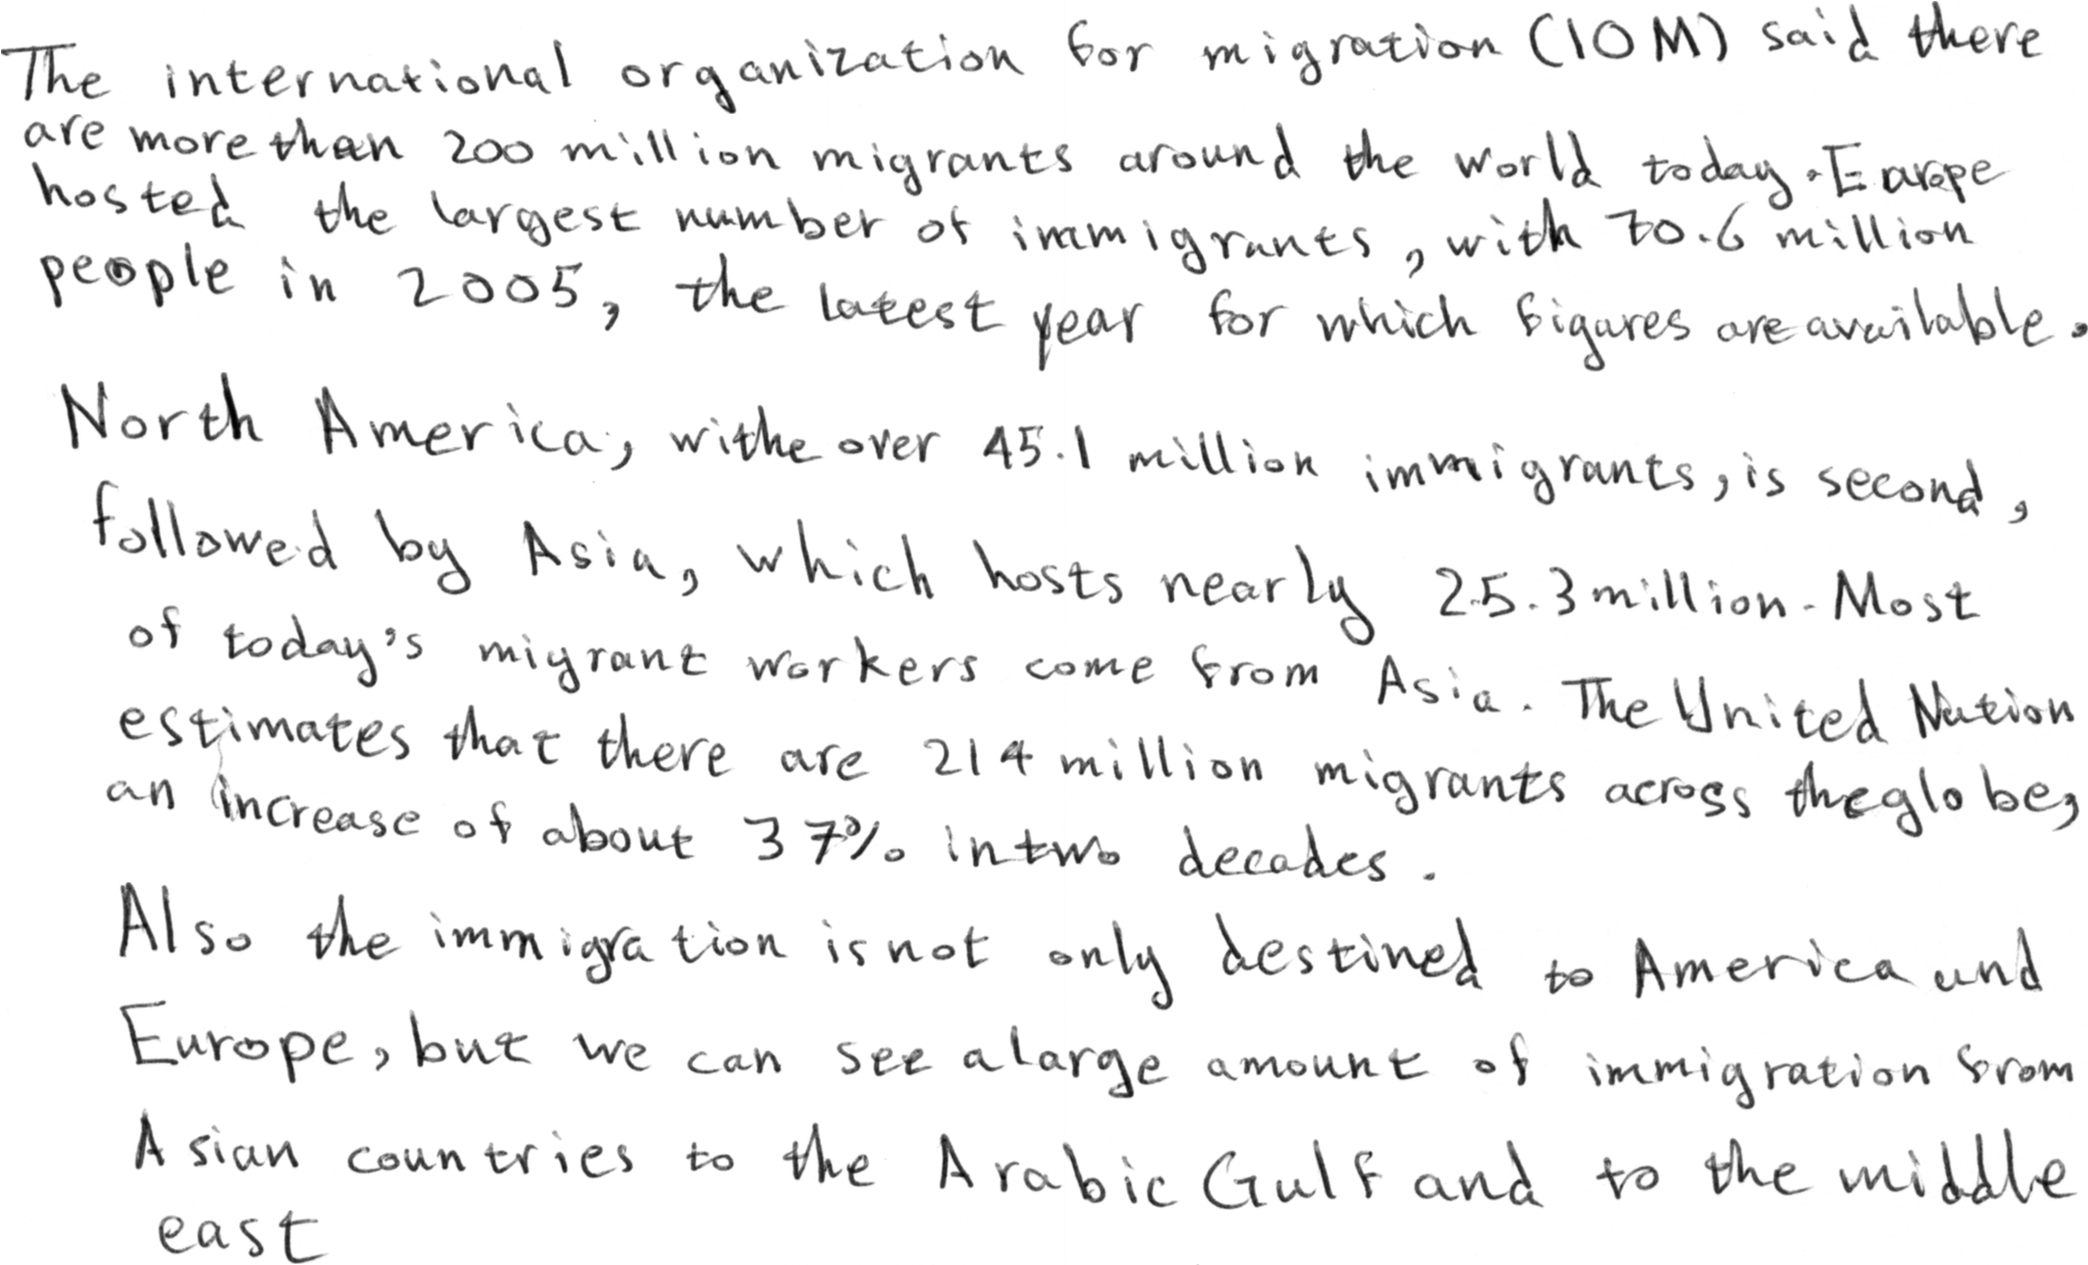 The international organization for migration (IOM) said there
are more than 200 million migrants around the world today. Europe
hosted the largest number of immigrants, with 70.6 million
people in 2005, the latest year for which figures are available.
North America, withe over 45.1 million immigrants, is second,
followed by Asia, which hosts nearly 25.3 million. Most
of today's migrant workers come from Asia. The United Nation
estimates that there are 214 million migrants across the globe,
an increase of about 37% in two decades.
Also the immigration is not only destined to America and
Europe, but we can see a large amount of immigration from
Asian countries to the Arabic Gulf and to the middle
east